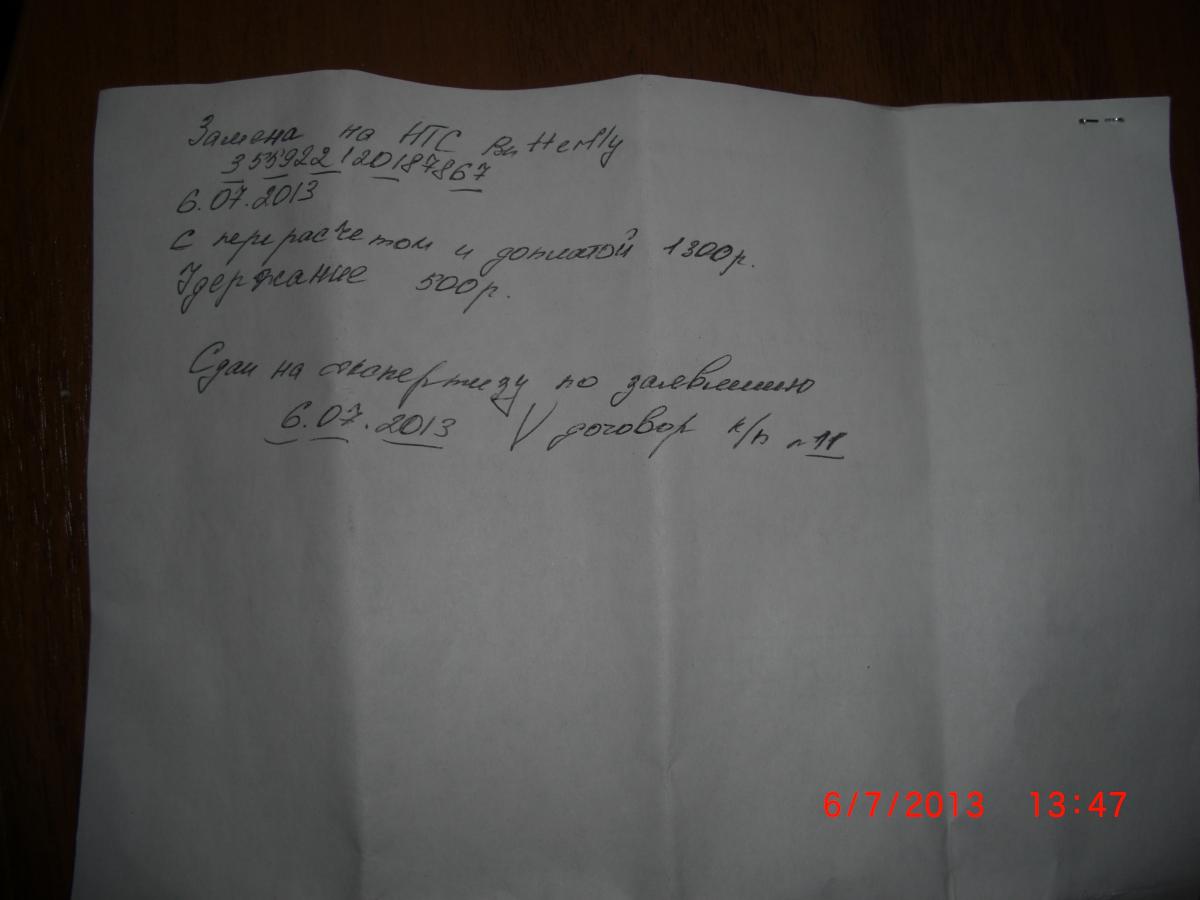 Замена на HTC Butterfly
355922120187867
6.07.2013
С перерасчетом и доплатой 1300р.
Удержание 500р.
Сдан на экспертизу по заявлению
6.07.2013 V договор к/п №11
6/7/2013 13:47